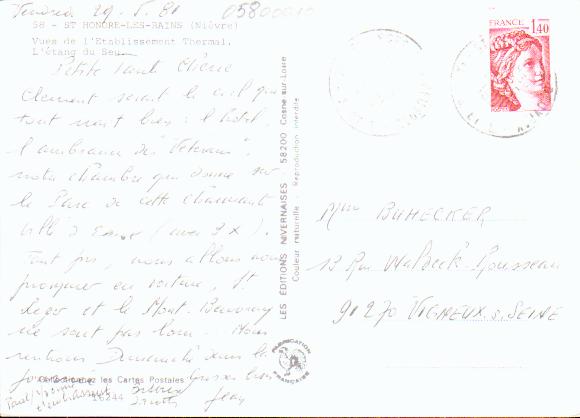 Vendredi 29-5-81
05800010
58 - ST HONORE-LES-BAINS (Nièvre)
Vues de l'Etablissement Thermal.
L'étang du Seu
Petite tante Chérie
Clement serait le ciel que
tout irait bien : l'hotel
l'ambiance des "Vétérans"
notre chambre qui donne sur
le Parc de cette charmante
ville d'eaux (avec 3 x).
Tant pis, nous allons nous
promener en voiture, St
Leger et le Mont-Beuvray
ne sont pas loin. Nous
rentrons Dimanche dans la
Collectionnez les Cartes Postales
Grosses bises
Jean
LES ÉDITIONS NIVERNAISES - 58200 Cosne sur Loire
Couleur naturelle - Reproduction interdite
FABRICATION FRANÇAISE
FRANCE
1,40
Mme BUHECKER
13 Rue Waldeck-Rousseau
91270 VIGNEUX s. SEINE